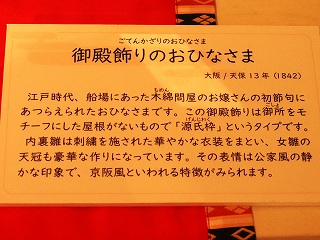 ごてんかざりのおひなさま
御殿飾りのおひなさま
大阪/天保13年(1842)
江戸時代、船場にあった木綿問屋のお嬢さんの初節句に
もめん
あつらえられたおひなさまです。この御殿飾りは御所をモ
ごしょ
チーフにした屋根がないもので「源氏枠」というタイプです。
げんじわく
内裏雛は刺繍を施された華やかな衣装をまとい、女雛の
天冠も豪華な作りになっています。その表情は公家風の静
かな印象で、京阪風といわれる特徴がみられます。